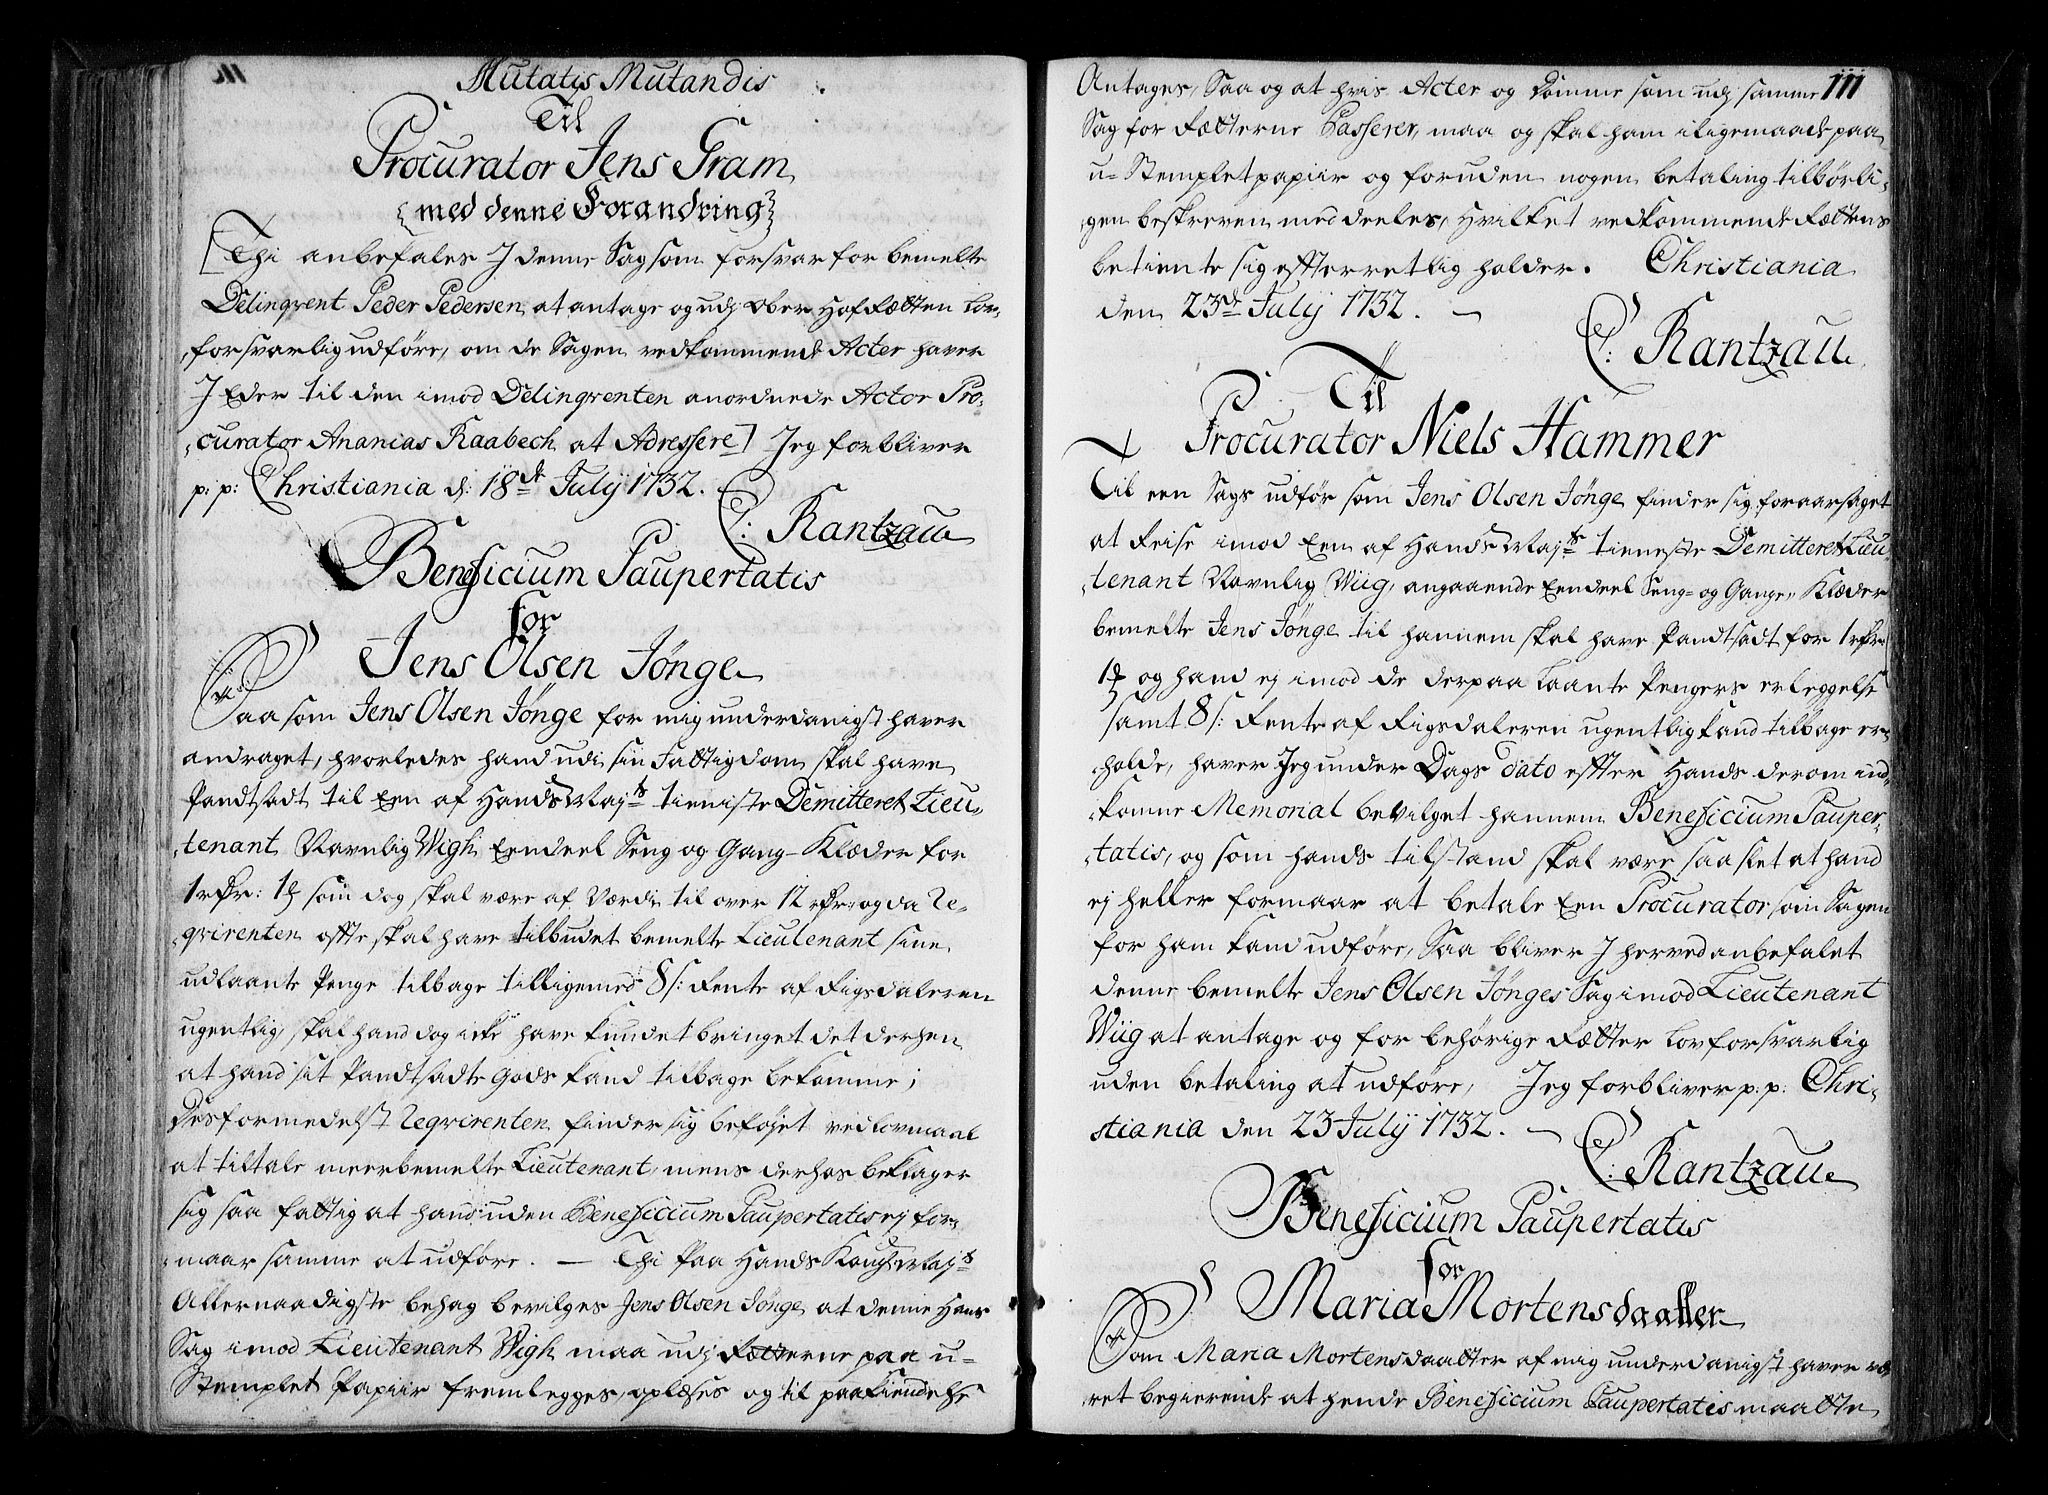 Mutatis Mutandis
Til
Procurator Jens Gram
med denne Forandring
[Thi anbefales I denne Sag som forsvar for bemelte
Delinqvent Peder Pedersen at antage og udj Ober Hof Rætten Lov-
forsvarlig udføre, om de Sagen vedkommende Acter haver
I Eder til den imod Delinqventen anordnede Actor Pro-
curator Ananias Raabech at Adressere] Jeg forbliver
p: p: Christiania d: 18de July 1732.
C: Rantzau
Beneficium Paupertatis
for
Jens Olsen Jönge
Saasom Jens Olsen Jönge for mig underdanigst haver
andraget, hvorledes hand udi sin Fattigdom skal have
Pandtsadt til Een af Hands Mayts tieniste Demitteret Lieu-
tenant Navnlig Wigh Eendeel Seng og Gang-Klæder for
1 rdr: 1 som dog skal være af Værdi til over 12 rdr: og da Re-
qvirenten offte skal have tilbudet bemelte Lieutenant sine
udlaante Penge tilbage tilligemed 8 s: Rente af Rigsdaleren
ugentlig, skal hand dog icke have kundet bringet det derhen
at hand sit Pandtsadte Gods kand tilbage bekomme;
Desformedelst Reqvirenten finder sig beføyet ved Lovmaal
at tiltale meerbemelte Lieutenant, mens derhos beklager
sig saa fattig at hand uden Beneficium Paupertatis ej for-
maar samme at udføre. — Thi Paa Hands Kongl: Mayts
Allernaadigste behag bevilges Jens Olsen Jönge at denne Hans
Sag imod Lieutenant Wigh maa udj Rætterne paa u-
Stemplet Papiir fremlegges, oplæses og til paakiendelse
111
Antages, Saa og at hvis Acter og Domme som udj samme
Sag for Rætterne Passerer, maa og skal ham iligemaade paa
u-Stemplet papiir og foruden nogen betaling tilbørli-
gen beskreven meddeeles, Hvilket vedkommende Rættens
betiente sig efterretlig holder. Christiania
den 23de July 1732. —
C: Rantzau
Til
Procurator Niels Hammer
Til een Sags udfør som Jens Olsen Jönge finder sig foraarsaget
at Reise imod Een af Hands Mayts tieneste Demitteret Lieu-
tenant Navnlig Wiig, angaaende Eendeel Seng- og Gange-Klæder
bemelte Jens Jönge til hannem skal have Pandtsadt for 1 rdr:
1 og hand ej imod de derpaa laante Pengers erleggelse
samt 8 s: Rente af Rigsdaleren ugentlig kand tilbage er-
holde, haver Jeg under Dags Dato effter Hands derom ind-
komne Memorial bevilget hannem Beneficium Pauper-
tatis, og som hands tilstand skal være saa slet at hand
ej heller formaar at betale Een Procurator som Sagen
for ham kand udføre, Saa bliver I herved anbefalet
denne bemelte Jens Olsen Jönges Sag imod Lieutenant
Wiig at antage og for behørige Rætter Lovforsvarlig
uden betaling at udføre, Jeg forbliver p: p: Chri-
stiania den 23 July 1732. —
C: Rantzau
Beneficium Paupertatis
for
Maria Mortensdaatter
Som Maria Mortensdaatter af mig underdanigst haver væ-
ret begierende at hende Beneficium Paupertatis maatte